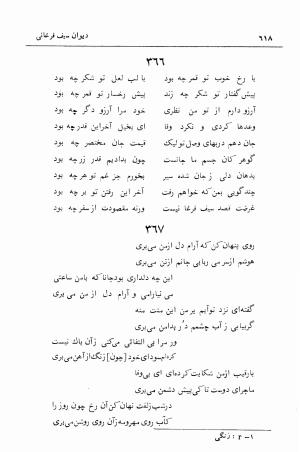 ۶۱۸
دیوان سیف فرغانی
۳۶۶
با رخ خوب تو قمر چه بود با لب لعل تو شکر چه بود
پیش گفتار تو شکر چه زند پیش رخسار تو قمر چه بود
آرزو دارم از تو من نظری خود مرا آرزو دگر چه بود
وعدها کردی و نکرد وفا ای بخیل آخر این قدر چه بود
جان دهم در بهای وصل تو لیک قیمت جان مختصر چه بود
گوهر کان جسم ما جانست چون بدادیم قدر زر چه بود
بدهان دلی ز جان شده سیر بخورم جز غم تو هر چه بود
چند گویی بمن که خواهم رفت آخر این رفتن تو بر چه بود
غرضت قصد سیف فرغا نیست ورنه مقصودت از سفر چه بود
۳۶۷
روی پنهان کن که آرام دل از من می‌بری
هوشم از سر می ربایی جانم از تن می‌بری
این چه دلداری بود جانا که بامن ساعتی
می نیارامی و آرام دل از من می بری
گفته‌ای نزد تو آیم بر من این منت منه
گر بیایی ز آب چشمم دُر بدامن می‌بری
ور مرا بی التفاتی می‌کنی زآن باک نیست
کز سودای خود [چون] زنگ از آهن می‌بری
با رقیب از من شکایت کرده‌ای ای بی‌وفا
ماجرای دوست تا کی پیش دشمن می‌بری
در شب زلفت نهان کن آن رخ چون روز را
کآب روی مهر و مه زآن روی روشن می‌بری
۱-۴ : زنگی